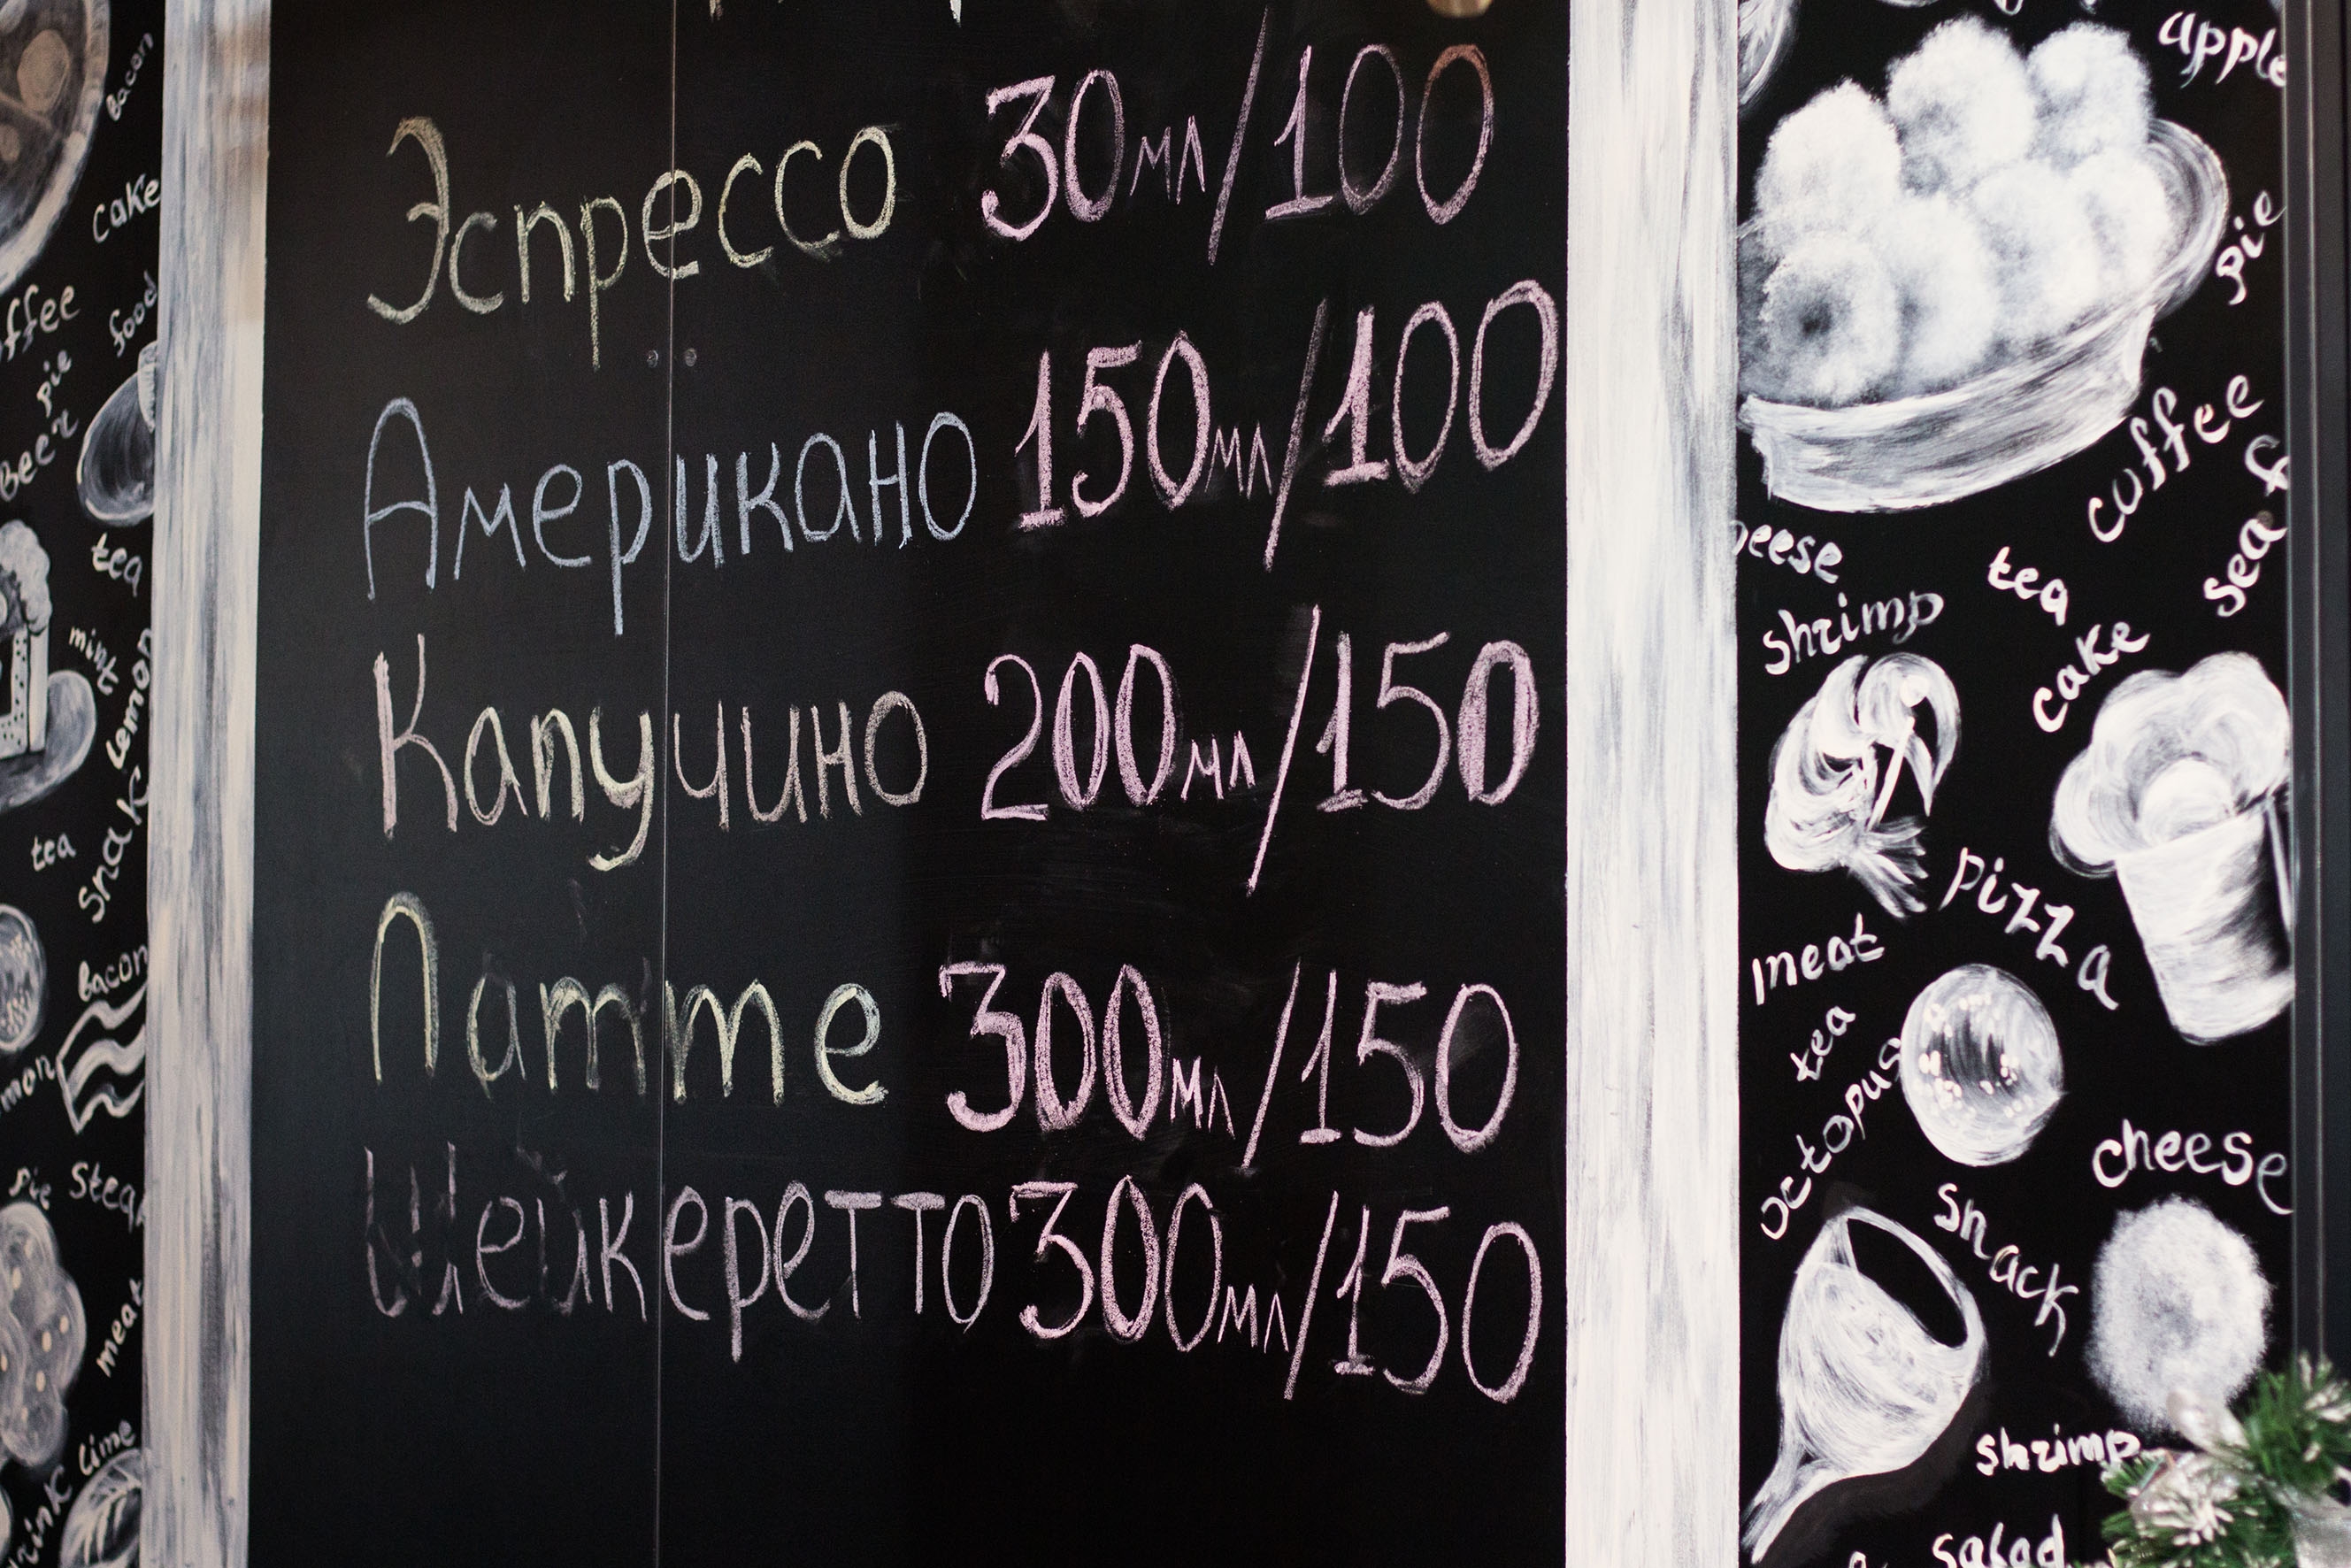 Эспрессо 30мл/100
Американо 150мл/100
Капучино 200мл/150
Латте 300мл/150
Шейкеретто 300мл/150
bacon
cake
food
pie
Beer
tea
mint
lemon
snak
tea
bacon
pie
meat
lime
apple
pie
coffee
tea
shrimp
cake
pizza
meat
tea
octopus
cheese
snack
shrimp
salad